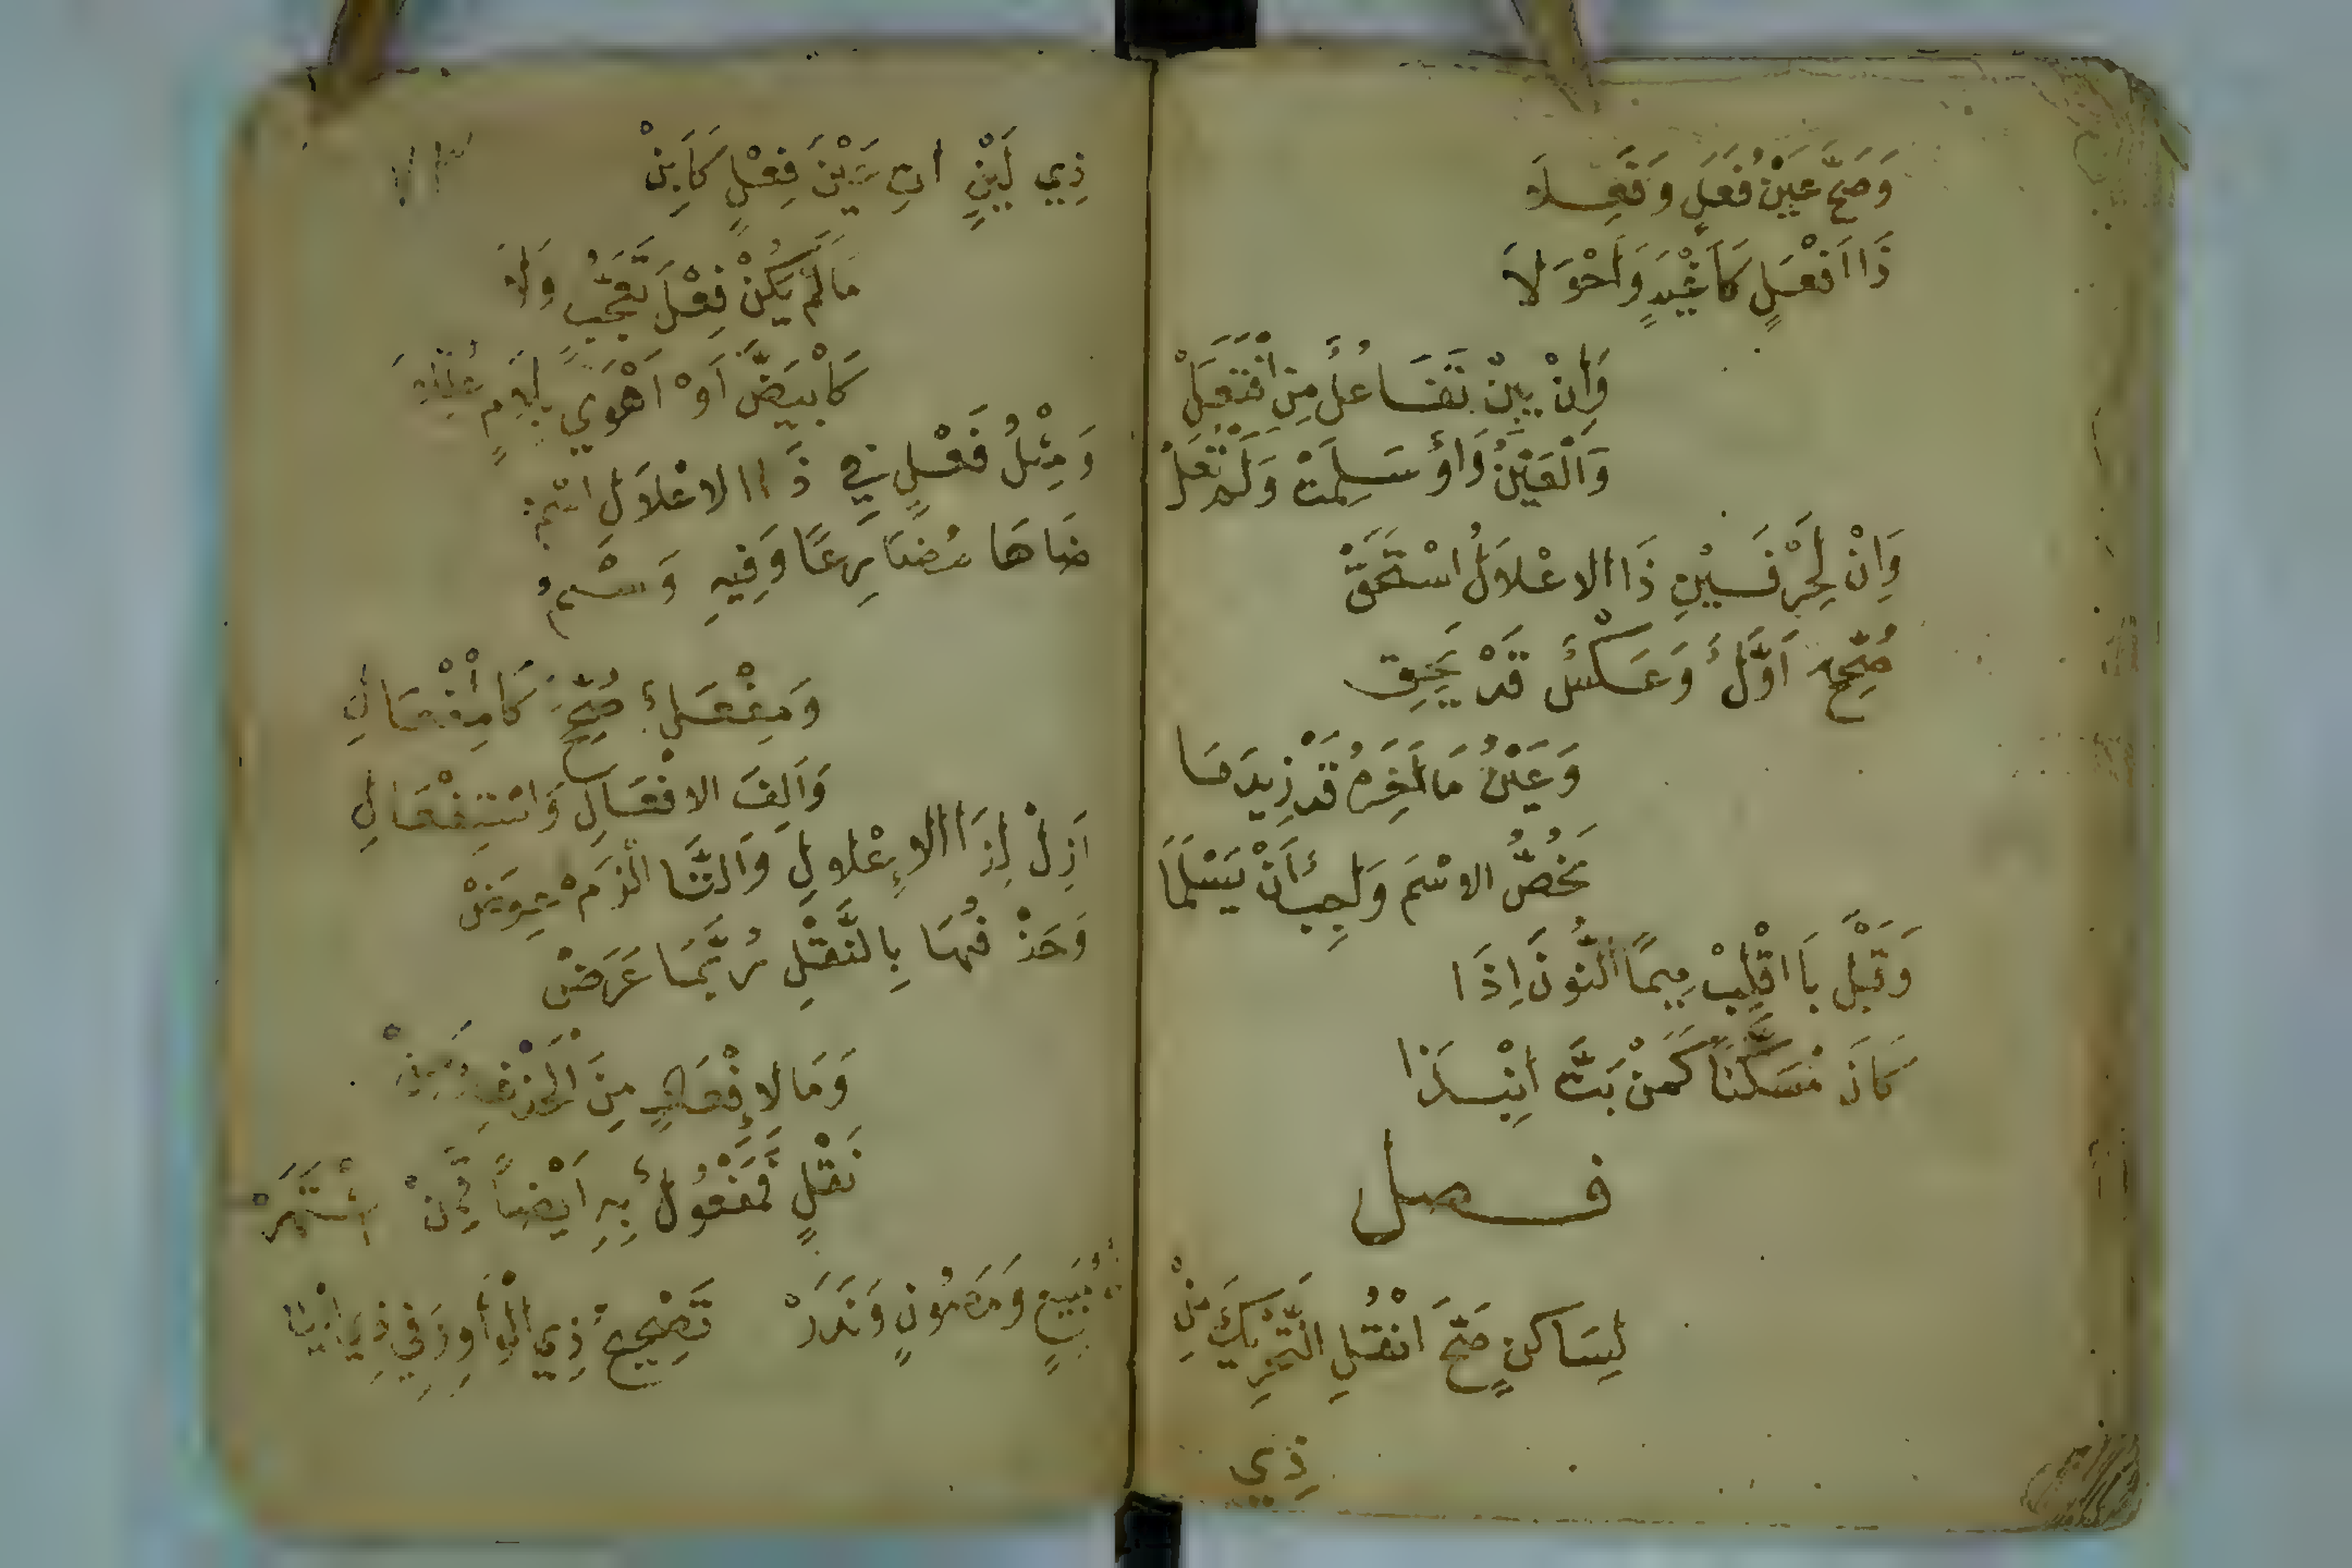 وَصَحَّ عَيْنُ فَعَلٍ وَفَعِلاَ
ذَا اَفْعَلٍ كَاَغْيَدٍ وَاَحْوَلاَ
وَاِنْ يَبِنْ تَفَاعُلٌ مِنِ افْتَعَلْ
وَالْعَيْنُ وَاوٌ سَلِمَتْ وَلَمْ تُعَلْ
وَاِنْ لِحَرْفَيْنِ ذَا الاعْلاَلُ اسْتُحِقّْ
صُحِّحَ اَوَّلٌ وَعَكْسٌ قَدْ يَحِقّ
وَعَيْنُ مَا آخِرَهُ قَدْ زِيدَ مَا
يَخُصُّ الاسْمَ وَاجِبٌ اَنْ يَسْلَمَا
وَقَبْلَ بَا اقْلِبْ مِيمًا النُّونَ اِذَا
كَانَ مُسَكَّنًا كَمَنْ بَتَّ انْبِذَا
فصل
لِسَاكِنٍ صَحَّ انْقُلِ التَّحْرِيكَ مِنْ
ذِي
ذِي لَيْنٍ اتٍ عَيْنَ فِعْلٍ كَاَبِنْ
مَالَمْ يَكُنْ فِعْلَ تَعَجُّبٍ وَلاَ
كَابْيَضَّ اَوْ اَهْوَي بِلاَمٍ عُلِّلاَ
وَمِثْلُ فِعْلٍ فِي ذَا الاعْلاَلِ اسْمُ
ضَاهَا مُضَارِعًا وَفِيهِ وَسْمُ
وَمِفْعَلٌ صُحِّحَ كَالْمِفْعَالِ
وَاَلِفَ الافْعَالِ وَاسْتِفْعَالِ
اَزِلْ لِذَا الاِعْلالِ وَالتَّا الْزَمْ عِوَضْ
وَحَذْفُهَا بِالنَّقْلِ رُبَّمَا عَرَضْ
وَمَا لاِفْعَالٍ مِنَ الْحَذْفِ وَمِنْ
نَقْلٍ فَمَفْعُولٌ بِهِ اَيْضًا قَمِنْ
مَبِيعٍ وَمَصُونٍ وَنَدَرْ تَصْحِيحُ ذِي الْوَاوِ وَفِي ذِي الْيَا اشْتَهَرْ